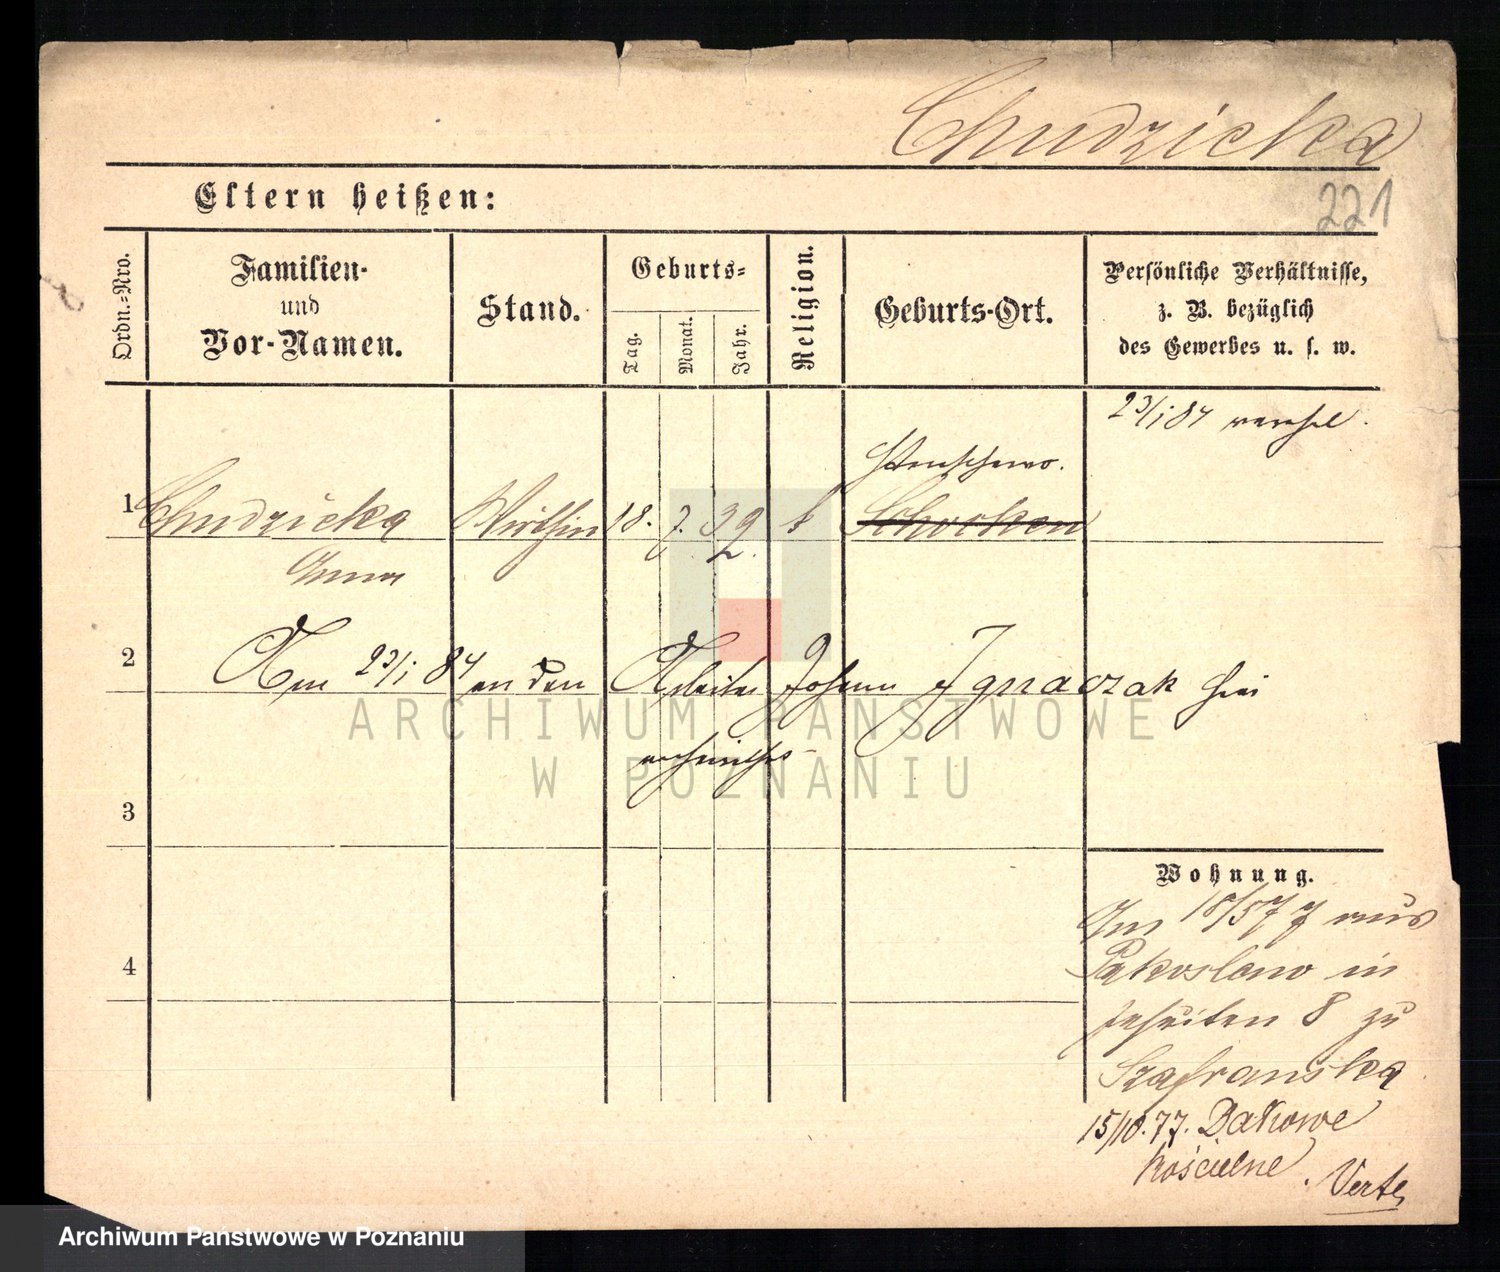 Chudzicka
221
Eltern heißen:
Ordn.-Nro.
Familien-
und
Vor-Namen.
Stand.
Geburts-
Tag.
Monat.
Jahr.
Religion.
Geburts-Ort.
Persönliche Verhältnisse,
z. B. bezüglich
des Gewerbes u. s. w.
23/1 84
1 Chudzicka Wirthin 18. 7. 39 k Schocken
2.
Anna
2 Am 23/1 84 an den Arbeiter Johann Ignaczak hier
verheirathet
3
4
Wohnung.
Am 18/5 77 aus
Pakoslaw in
8 zu
Szafranska
15/10.77. Dakowe
kościelne
. Verte
ARCHIWUM PAŃSTWOWE
W POZNANIU
Archiwum Państwowe w Poznaniu